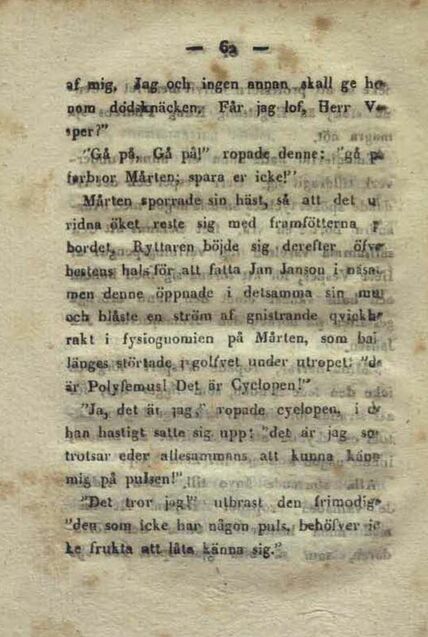 — 62 —
af mig, Jag och ingen annan skall ge ho-
nom dödsknäcken. Får jag lof, Herr Ve-
sper?"
"Gå på, Gå på!" ropade denne; "gå på
farbror Mårten; spara er icke!"
Mårten sporrade sin häst, så att det
ridna öket reste sig med framfötterna
bordet, Ryttaren böjde sig derefter öfver
hestens hals för att fatta Jan Janson i näsan
men denne öppnade i detsamma sin
och blåste en ström af gnistrande
rakt i fysiognomien på Mårten, som
länges störtade i golfvet under utropet: "det
är Polyfemus! Det är Cyclopen!"
"Ja, det är jag," ropade cyclopen, i
han hastigt satte sig upp; "det är jag som
trotsar eder allesammans att kunna
mig på pulsen!"
"Det tror jag!" utbrast den frimodige
"den som icke har någon puls, behöfver ic-
ke frukta att låta känna sig."